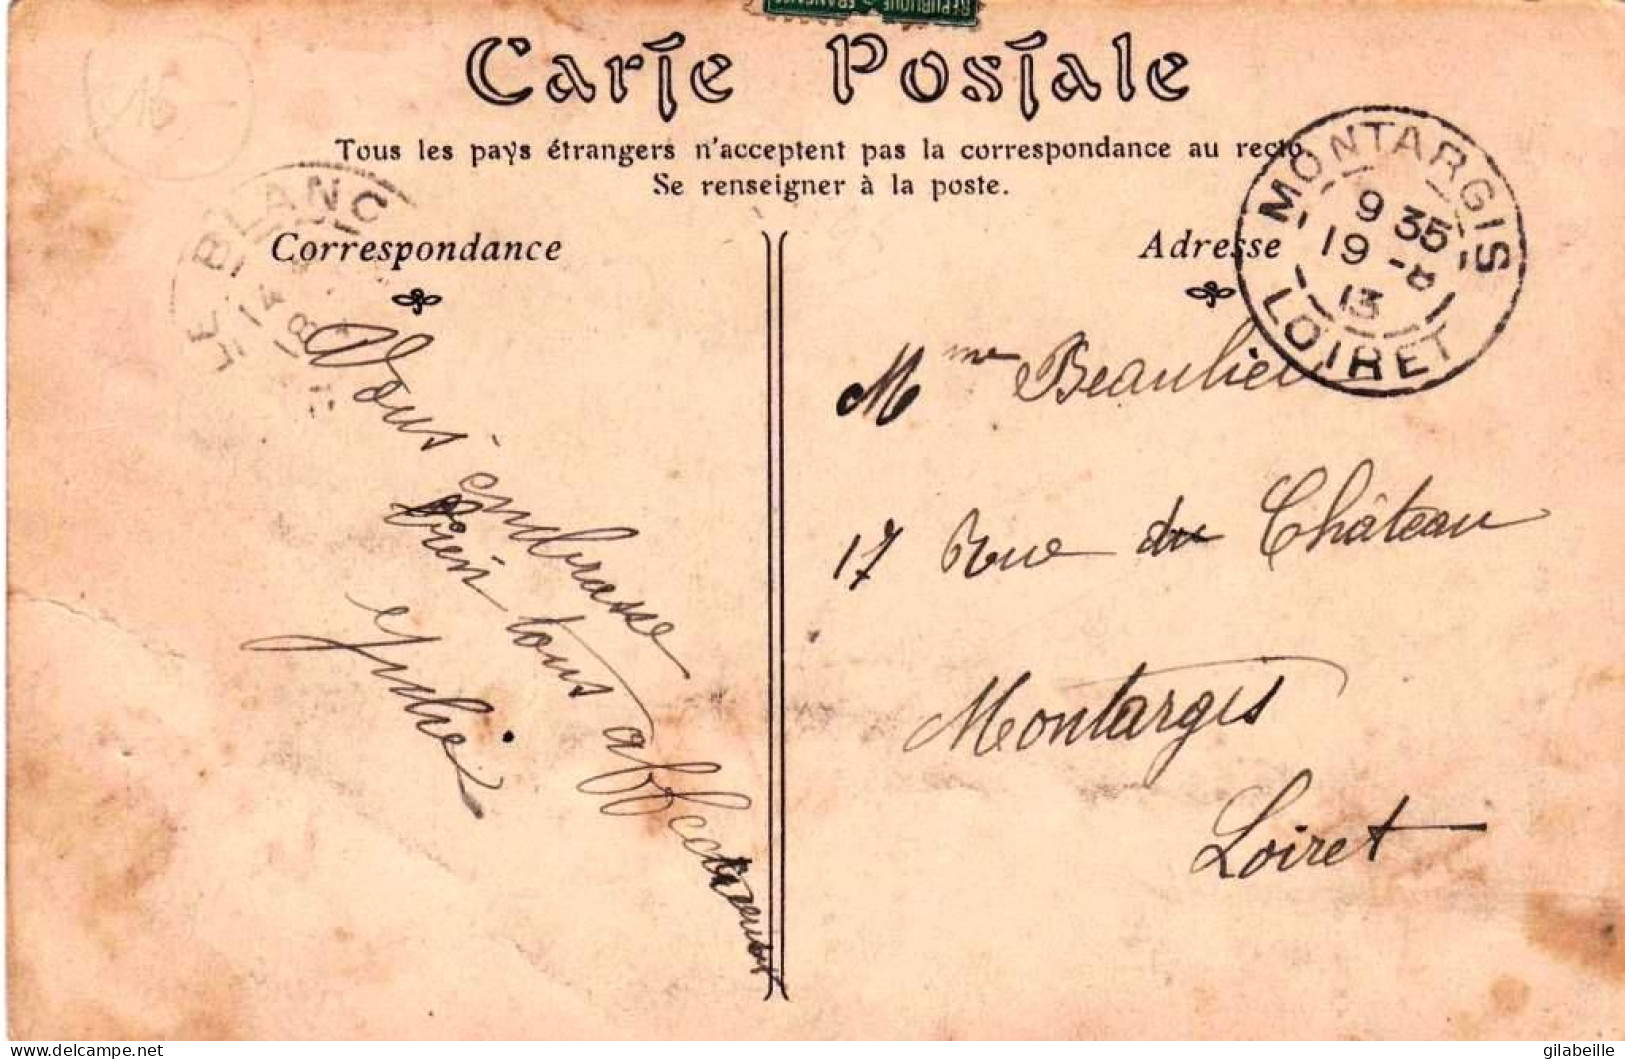 RÉPUBLIQUE FRANÇAISE
Carte Postale
Tous les pays étrangers n'acceptent pas la correspondance au recto
Se renseigner à la poste.
Correspondance
Adresse
16
LE BLANC
14
8
MONTARGIS
9 35
19 -8
13
LOIRET
Vous embrasse
bien tous affectueusement
Julie
Mme Beaulieu
17 Rue du Château
Montargis
Loiret
delcampe.net
gilabeille